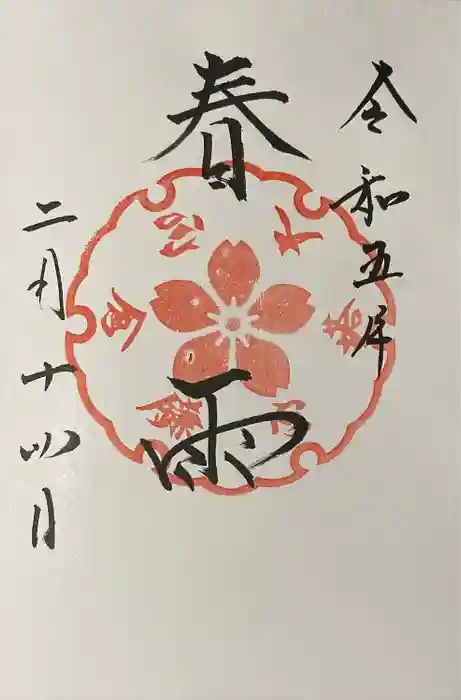 令和五年
春雨
二月十四日